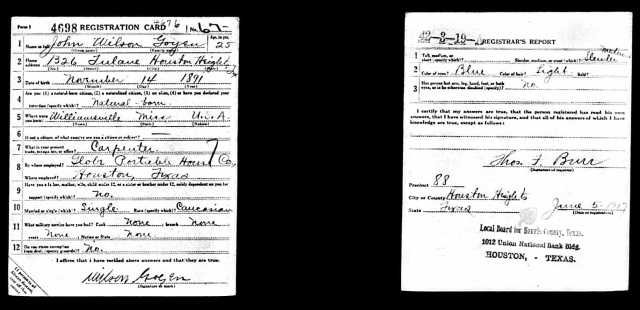 Form 1
4698 REGISTRATION CARD No. 67
1 Name in full John Wilson Goyen Age, in yrs. 25
(Given name) (Family name)
2 Home address 1326 Tulane Houston Heights
(No.) (Street) (City) (State)
3 Date of birth November 14 1891
(Month) (Day) (Year)
4 Are you (1) a natural-born citizen, (2) a naturalized citizen, (3) an alien, (4) or have you declared your
intention (specify which)? Natural born
5 Where were you born? Williamsville Miss U.S.A.
(Town) (State) (Nation)
6 If not a citizen, of what country are you a citizen or subject? —
7 What is your present trade, occupation, or office? Carpenter
8 By whom employed? Portable House Co,
Where employed? Houston, Texas
9 Have you a father, mother, wife, child under 12, or a sister or brother under 12, solely dependent on you for
support (specify which)? No.
10 Married or single (which)? Single Race (specify which)? Caucasian
11 What military service have you had? Rank None; branch None
years None; Nation or State None
12 Do you claim exemption from draft (specify grounds)? No.
I affirm that I have verified above answers and that they are true.
Wilson Goyen
(Signature or mark)
42-2-19-A
REGISTRAR'S REPORT
1 Tall, medium, or short (specify which)? Slender, medium, or stout (which)? Slender
2 Color of eyes? Blue Color of hair? Light Bald?
3 Has person lost arm, leg, hand, foot, or both eyes, or is he otherwise disabled (specify)? No.
I certify that my answers are true, that the person registered has read his own
answers, that I have witnessed his signature, and that all of his answers of which I have
knowledge are true, except as follows:
Thos F. Burr
(Signature of registrar)
Precinct 88
City or County Houston Heights
State Texas June 5-1917
(Date of registration)
Local Board for Harris County, Texas.
1012 Union National Bank Bldg.
HOUSTON, - TEXAS.